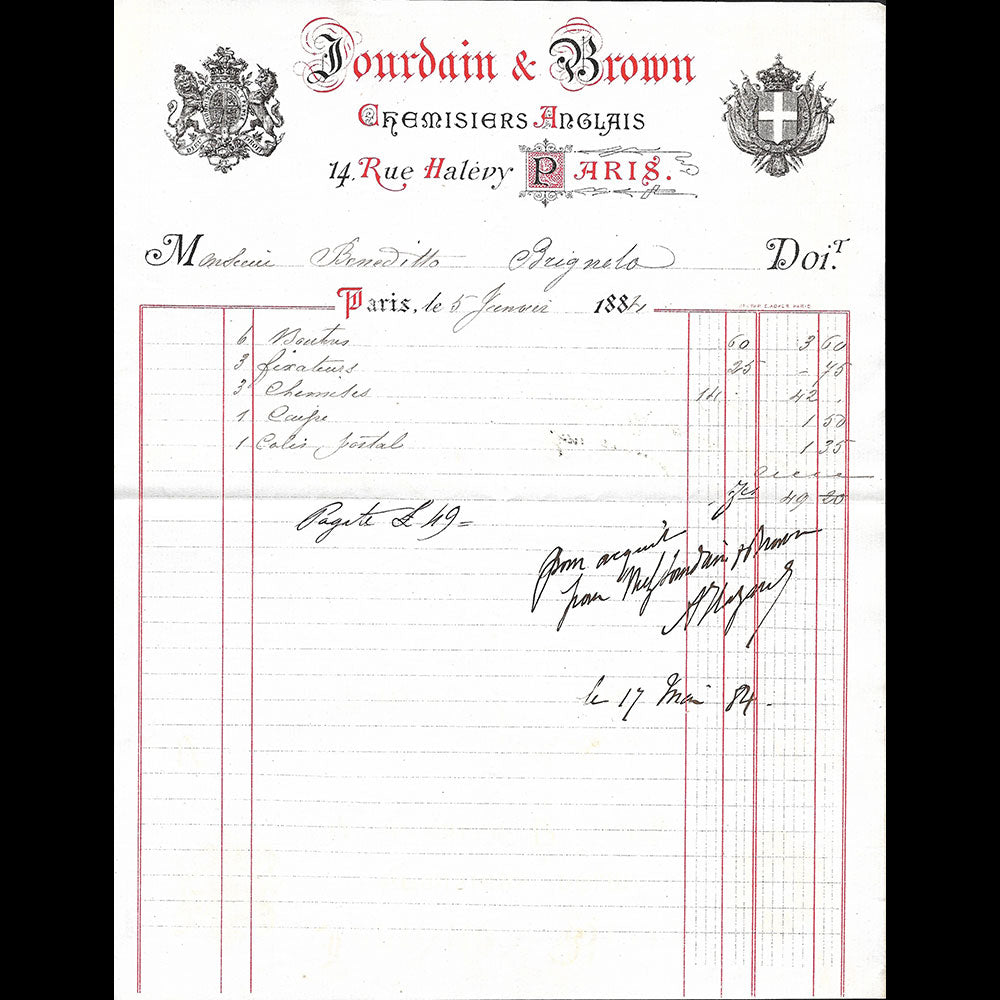 Jourdain & Brown
Chemisiers Anglais
14, Rue Halévy Paris.
Monsieur Beneditto Brignolo Doi.T
Paris, le 5 Janvier 1884
6 Boutons 60 3 60
3 fixateurs 25 - 75
3 Chemises 14 . 42 .
1 1 50
1 Colis postal 1 35
49 20
Pagate £ 49 =
pour acquit
pour Jourdain & Brown
le 17 Mai 84.